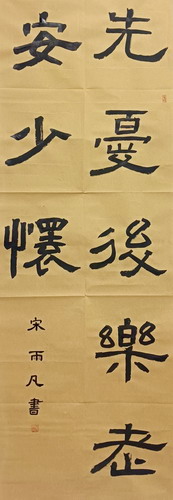 先憂後樂老
安少懷
宋雨凡書